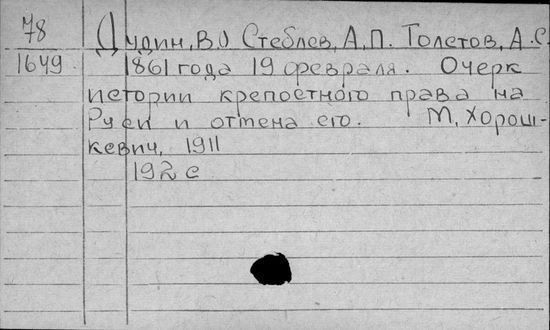 78 Дудин, В.О Стеблев, А.П. Толстов, А.С
1649 1861 года 19 февраля. Очерк
истории крепостного права на
Руси и отмена его. М, Хорош-
кевич, 1911
192 с